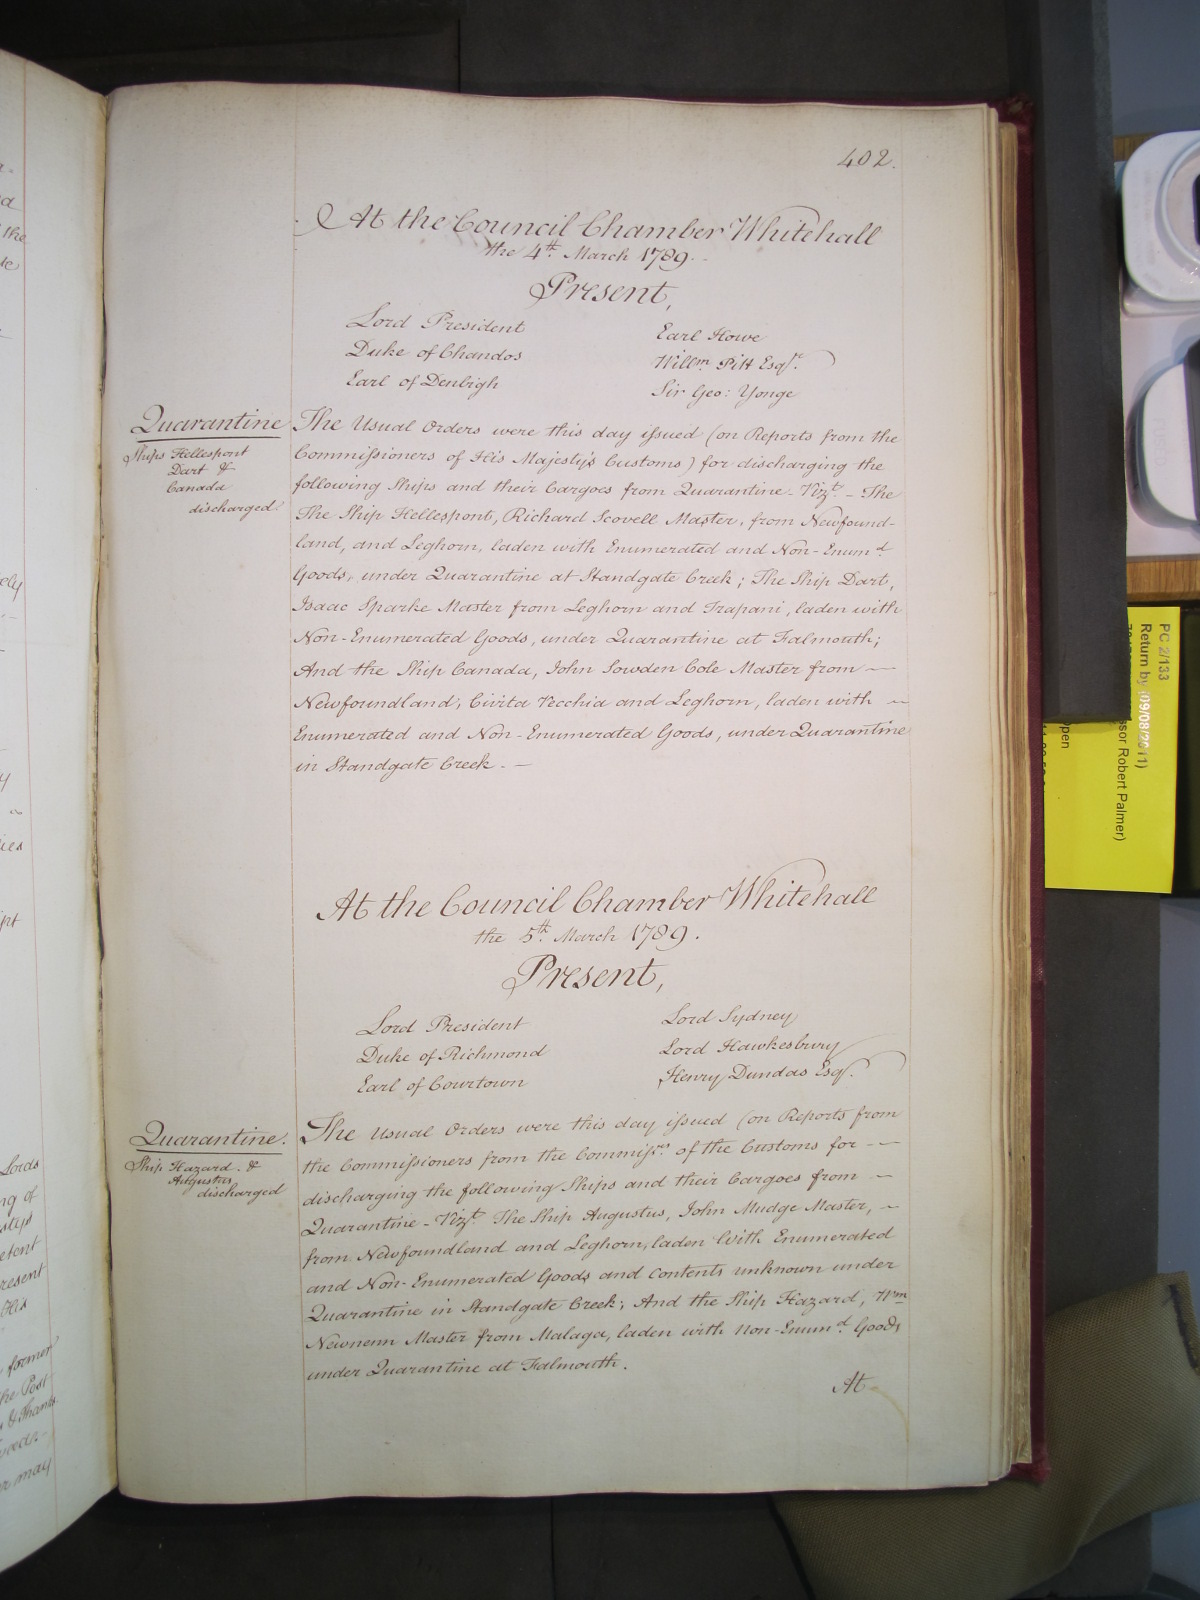 402.
At the Council Chamber Whitehall
the 4th. March 1789.
Present,
Lord President
Duke of Chandos
Earl of Denbigh
Earl Howe
Willm Pitt Esqr.
Sir Geo: Yonge
Quarantine
Ships Hellespont
Dart &
Canada
discharged.
The Usual Orders were this day issued (on Reports from the
Commissioners of His Majesty's Customs) for discharging the
following Ships and their Cargoes from Quarantine - Vizt. - The
The Ship Hellespont, Richard Scovell Master, from Newfound-
land, and Leghorn, laden with Enumerated and Non-Enumd.
Goods, under Quarantine at Standgate Creek; The Ship Dart,
Isaac Sparke Master from Leghorn and Trapani, laden with
Non-Enumerated Goods, under Quarantine at Falmouth;
And the Ship Canada, John Sowden Cole Master from —
Newfoundland; Civita Vecchia and Leghorn, laden with ~
Enumerated and Non-Enumerated Goods, under Quarantine
in Standgate Creek. —
At the Council Chamber Whitehall
the 5th. March 1789.
Present,
Lord President
Duke of Richmond
Earl of Courtown
Lord Sydney
Lord Hawkesbury
Henry Dundas Esqr.
Quarantine.
Ship Hazard. &
Augustus
discharged
The Usual Orders were this day issued (on Reports from
the Commissioners from the Commissrs. of the Customs for - —
discharging the following Ships and their Cargoes from —
Quarantine - Vizt. The Ship Augustus, John Mudge Master, ~
from Newfoundland and Leghorn, laden With Enumerated
and Non-Enumerated Goods and contents unknown under
Quarantine in Standgate Creek; And the Ship Hazard, Wm
Newnenn Master from Malaga, laden with Non-Enumd. Goods
under Quarantine at Falmouth.
At
PC 2/133
Return by (09/08/2011)
ssor Robert Palmer)